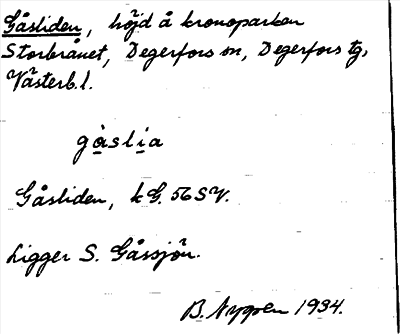 Gåsliden, höjd å kronoparken
Storbrånet, Degerfors sn, Degerfors tg,
Västerb. l.
gàslia
Gåsliden, kG. 56 SV.
Ligger S. Gåssjön.
B. Nygren 1934.